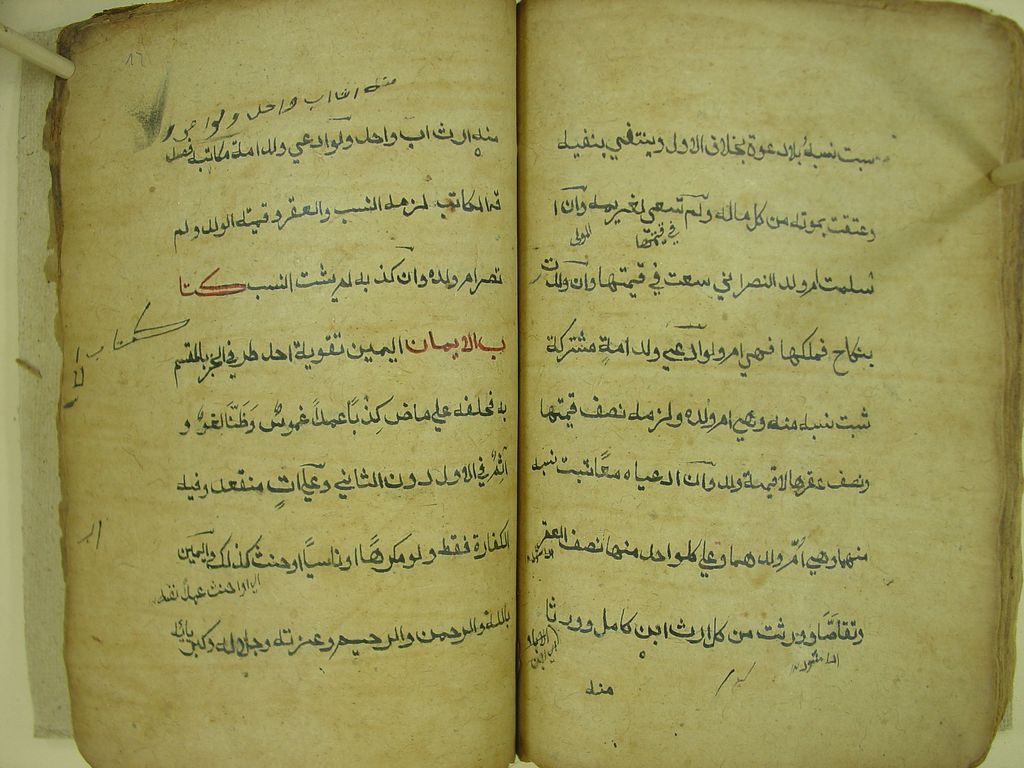 يثبت نسبه بلا دعوة بخلاف الاول وينتفي بنفيه
وعتقت بموته من كل ماله ولم تسعى لغريمه وان ا
في قيمتها
المولى
سلمت ام ولد النصراني سعت في قيمتها وان ولدت
بنكاح فملكها فهي ام ولد ولو ادعي ولد امة مشتركة
ثبت نسبه منه وهي ام ولده ولزمه نصف قيمتها
ونصف عقرها لا قيمة ولد وان ادعياه معا ثبت نسبه
منهما وهي ام ولد هما وعلي كل واحد منهما نصف العقر
وتقاصا وورثت من كل ارث ابن كامل وورثا
منه
منه ارث اب واحد ولو ا
منه ارث اب واحد ولو ادعي ولد امة مكاتبه فصدقـ
ته المكاتب لزمه النسب والعقر وقيمة الولد ولم
تصر ام ولده وان كذبه لم يثبت النسب كتا
كتاب ا
لا
ب الايمان اليمين تقوية احد طرفي الخبر بالمقسم
به فحلفه علي ماض كذبا عمدا غموس وظنا لغو و
اثم في الاول دون الثاني وعلي ات منعقد وفيه
الكفارة فقط ولو مكرها او ناسيا او حنث كذلك واليمين
بالله والرحمن والرحيم وعزته وجلاله وكبريائه